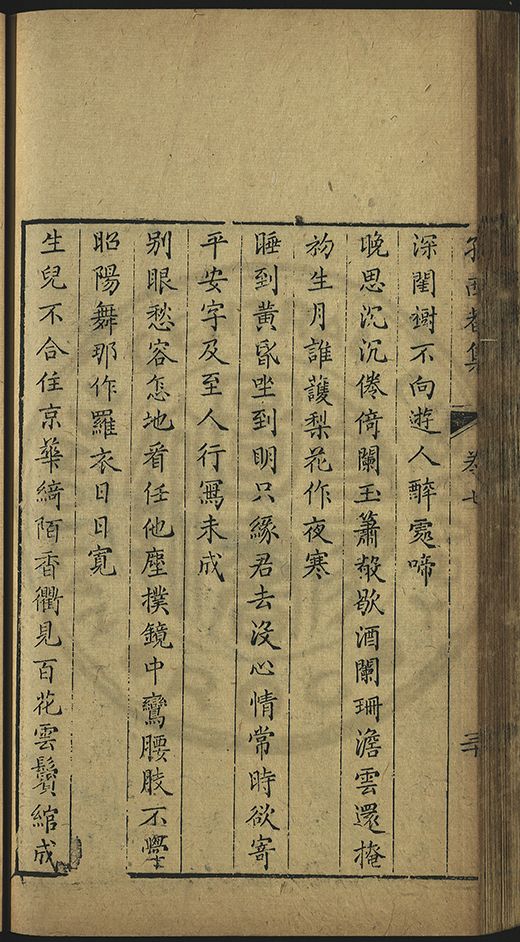 孫西菴集 卷七 三十
深閨樹不向遊人醉處啼
晚思沉沉倦倚闌玉簫敲歇酒闌珊澹雲還掩
初生月誰護梨花作夜寒
睡到黃昏坐到明只緣君去沒心情常時欲寄
平安字及至人行寫未成
别眼愁容怎地看任他塵撲鏡中鸞腰肢不學
昭陽舞那作羅衣日日寬
生兒不合住京華綺陌香衢見百花雲鬢綰成